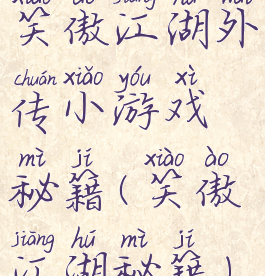 xiào ào jiāng hú wài
笑傲江湖外
chuán xiǎo yóu xì
传小游戏
mì jí xiào ào
秘籍(笑傲
jiāng hú mì jí
江湖秘籍)